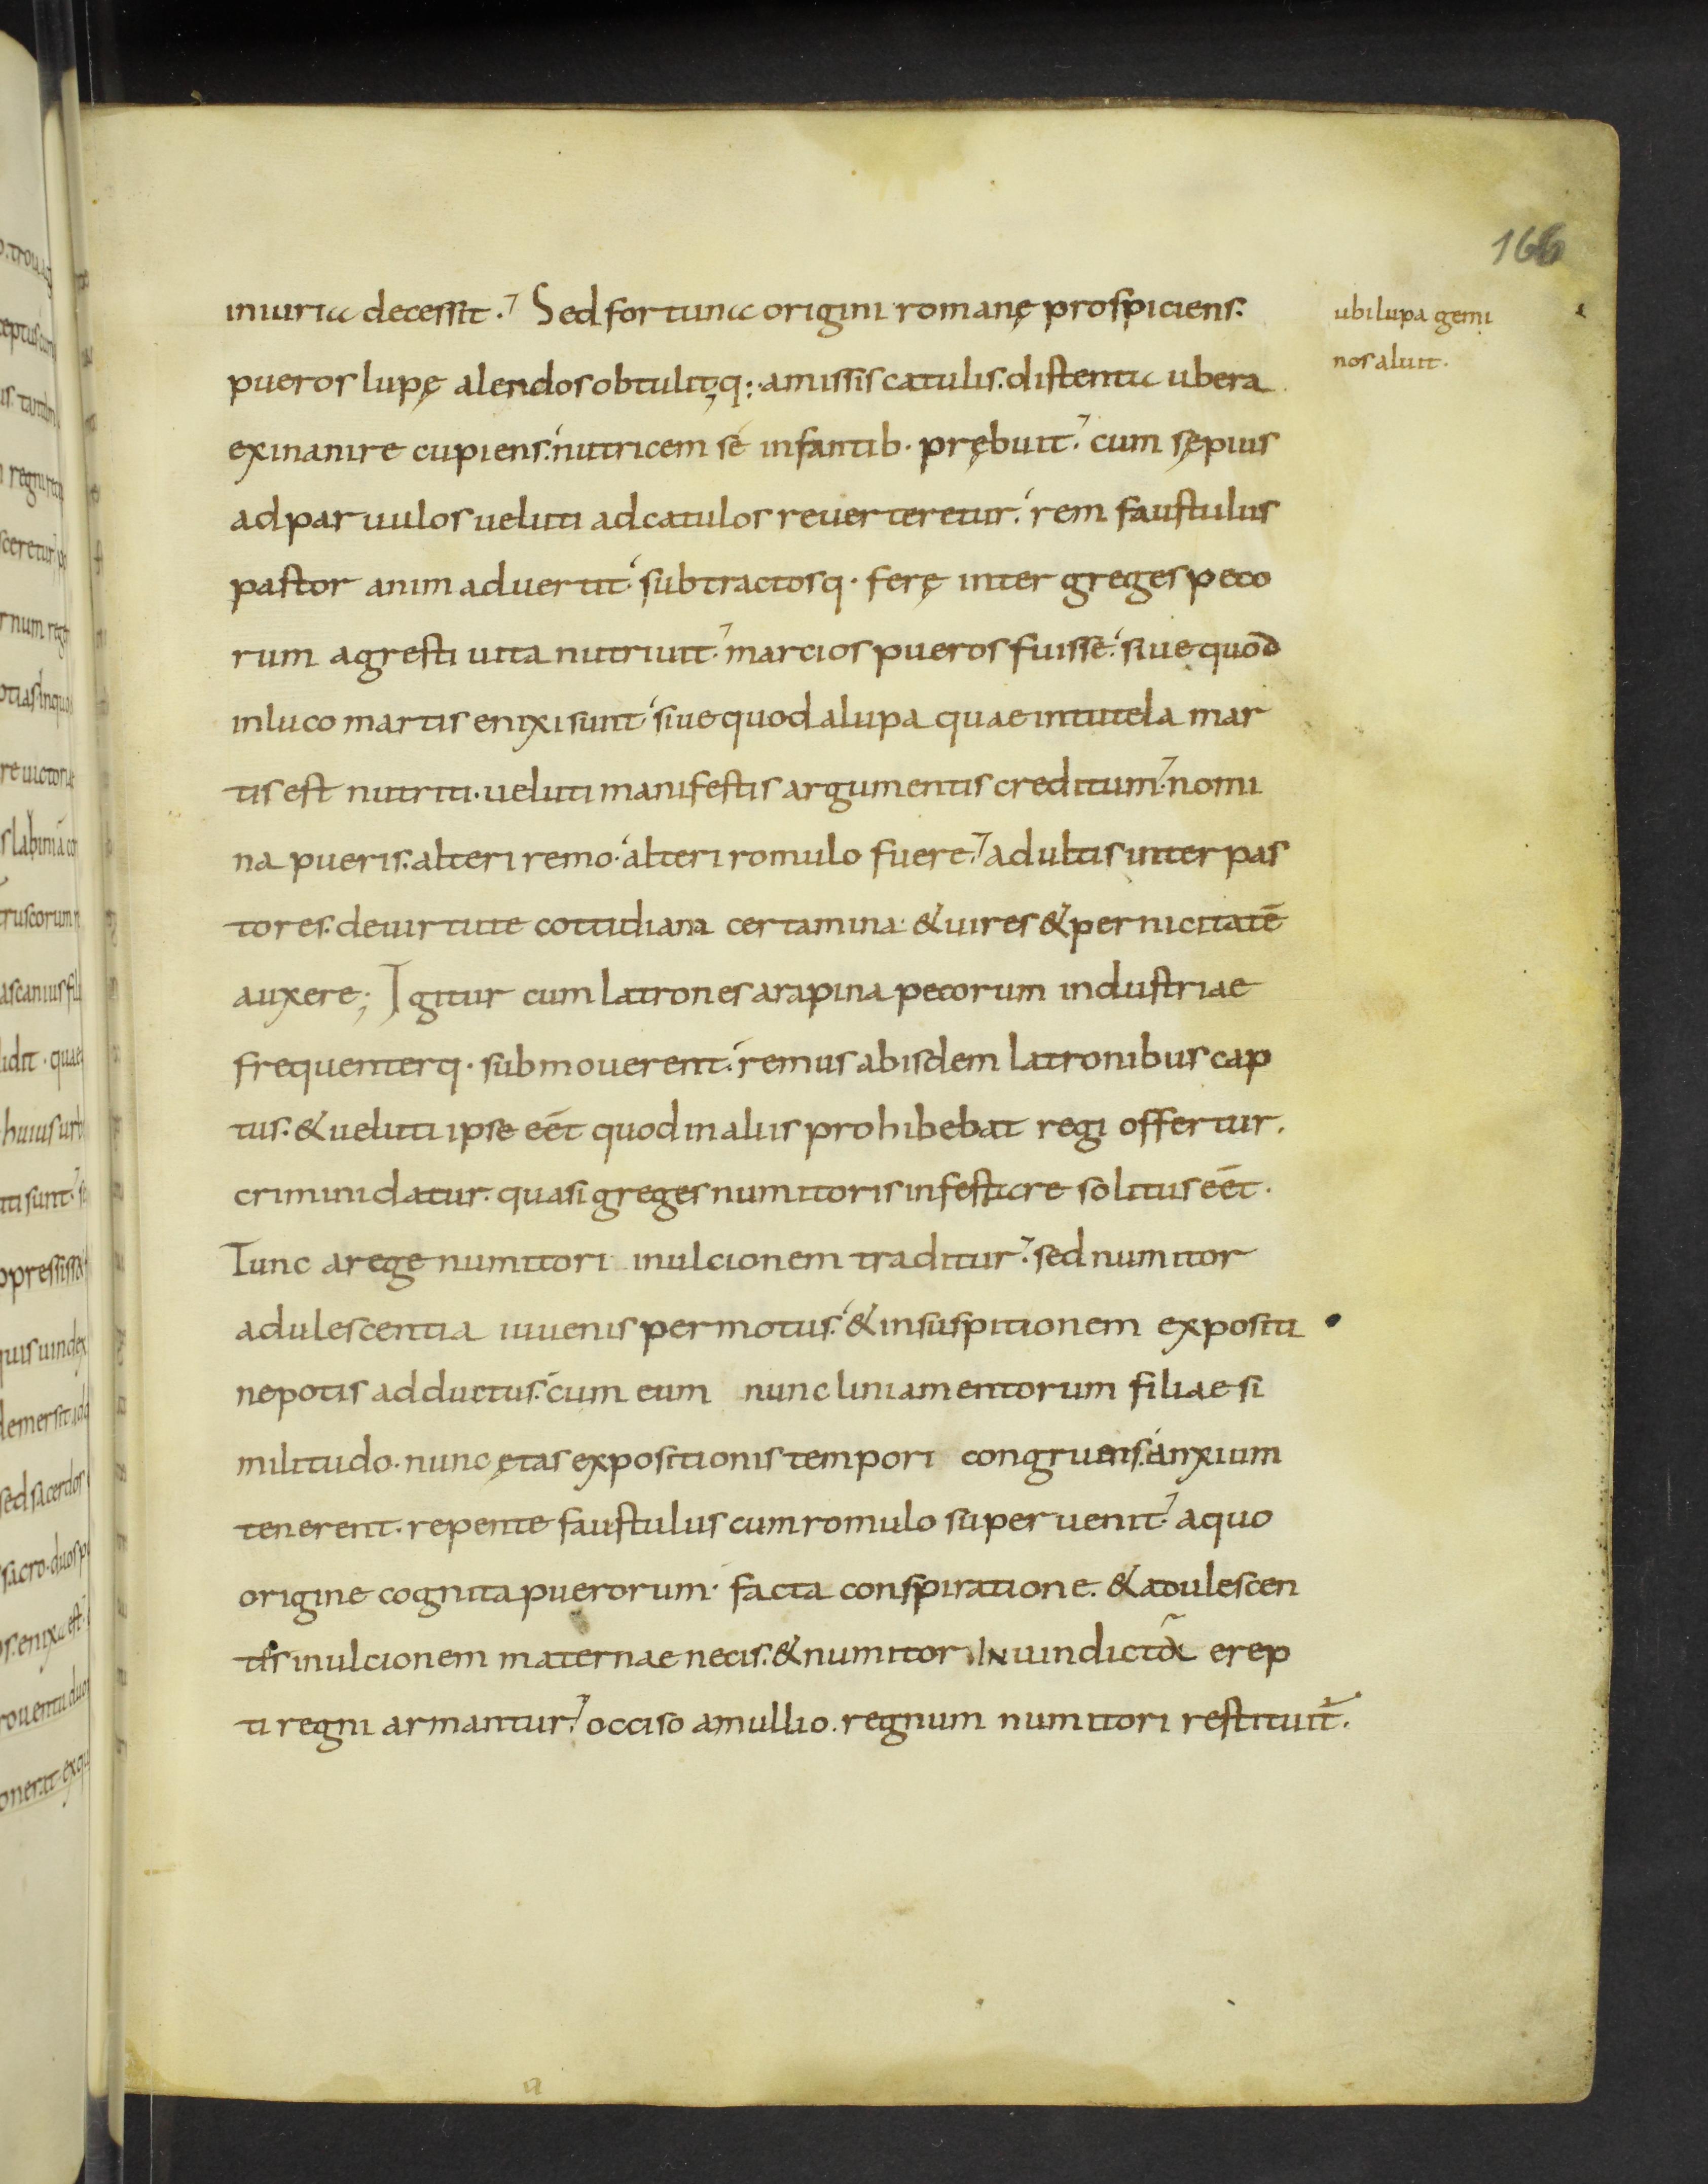 166
iniuria decessit. Sed fortuna origini romanę prospiciens.
pueros lupę alendos obtulit; q: amissis catulis. distenta ubera
exinanire cupiens. nutricem sé infantib. prębuit. cum sępius
ad paruulos ueluti ad catulos reuerteretur. rem faustulus
pastor animaduertit. subtractosq. ferę inter greges peco
rum agresti uita nutriuit. marcios pueros fuisse. siue quod
inluco martis enixi sunt. siue quod alupa quae intutela mar
tis est nutriti. ueluti manifestis argumentis creditum. nomi
na pueris. alteri remo. alteri romulo fuere. adultis inter pas
tores. deuirtute cottidiana certamina. & uires & pernicitatē
auxere; Igitur cum latrones arapina pecorum industriae
frequenterq. submouerent. remus abisdem latronibus cap
tus. & ueluti ipse eēt quod in aliis prohibebat regi offertur.
crimini datur. quasi greges numitoris infestare solitus eēt.
Tunc arege numitori inulcionem traditur. sed numitor
adulescentia iuuenis permotus. & insuspitionem expositi
nepotis adductus. cum eum nunc liniamentorum filiae si
militudo. nunc ętas expositionis tempori congruens. anxium
tenerent. repente faustulus cum romulo superuenit. aquo
origine cognita puerorum. facta conspiratione. & adulescen
tes inulcionem maternae necis. & numitor in uindictā erep
ti regni armantur. occiso amullio. regnum numitori restituit.
ubi lupa gemi
nos aluit.